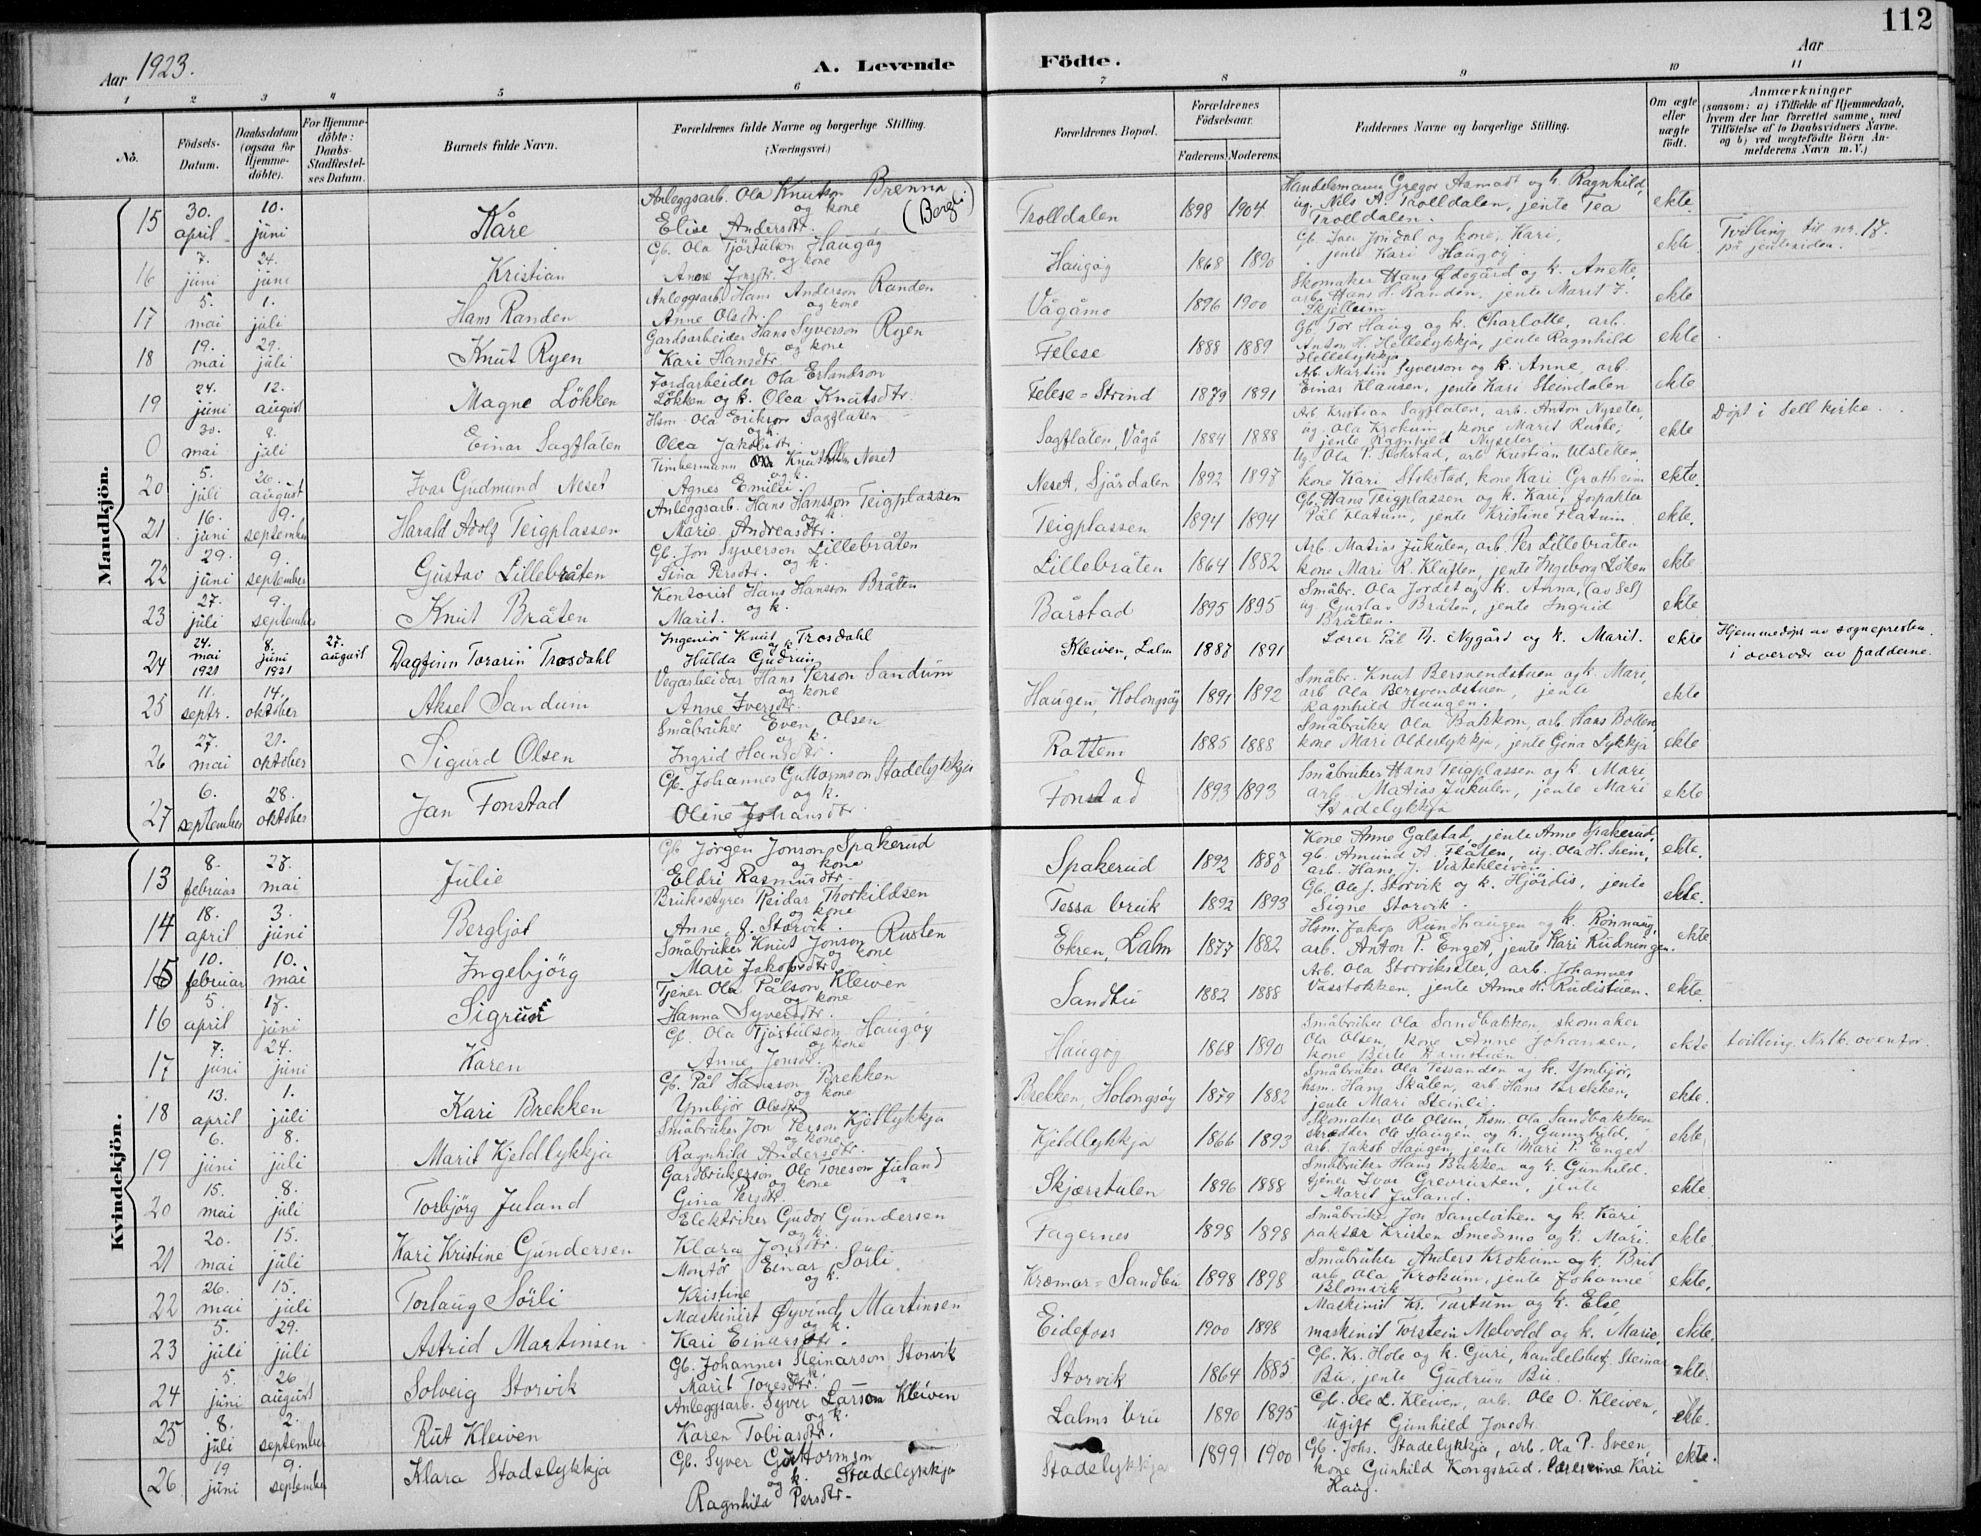 112
Aar 1923.
A. Levende
Födte.
Aar
1 2 3 4 5 6 7 8 9 10 11
No.
Födsels-Datum.
Daabsdatum (ogsaa for Hjemme-döbte).
For Hjemme-döbte: Daabs-Stadfæstel-ses Datum.
Barnets fulde Navn.
Forældrenes fulde Navne og borgerlige Stilling. (Næringsvei.)
Forældrenes Bopæl.
Forældrenes Födselsaar.
Faderens. Moderens.
Faddernes Navne og borgerlige Stilling.
Om ægte eller uægte födt.
Anmærkninger
(saasom: a) i Tilfælde af Hjemmedaab, hvem der har forrettet samme, med Tilföielse af to Daabsvidners Navne, og b) ved uægtefödte Börn Anmelderens Navn m. V.)
Mandkjön.
15 30. april 10. juni Kåre Anleggsarb. Ola Knutson Brenna (Bergli) og kone Elise Andersdtr. Trolldalen 1898 1904 Handelsmann Gregor Aamodt og k. Ragnhild, ug. Nils A. Trolldalen, jente Tea Trolldalen. ekte.
16 7. juni 24. juni Kristian Gb. Ola Tjøstulson Haugøy og kone Anne Jonsdtr. Haugøy 1868 1890 Gb. Iver Jondal og kone, Kari, jente Kari Haugøy ekte Tvilling til nr. 17. på jentesiden.
17 5. mai 1. juli Hans Randen Anleggsarb. Hans Anderson Randen og kone Anne Olsdtr. Vågåmo 1896 1900 Skomaker Hans Ødegård og k. Anette, arb. Hans H. Randen, jente Marit I. Skjellum ekte
18 19. mai 29. juli Knut Ryen Gardsarbeider Hans Syverson Ryen og kone Kari Hansdtr. Felese 1888 1889 Gb. Tor Haug og k. Charlotte, arb. Anton H. Hellelykkja, jente Ragnhild Hellelykkja ekte
19 24. juni 12. august Magne Løkken Jordarbeider Ola Erlandson Løkken og k. Olea Knutsdtr. Felese = Strind 1879 1891 Arb. Martin Syverson og k. Anne, arb. Einar Klausen, jente Kari Steindalen ekte
0 30. mai 8. juli Einar Sagflaten Hsm. Ola Erikson Sagflaten og k. Olea Jakobsdtr. Sagflaten, Vågå 1884 1888 Arb. Kristian Sagflaten, arb. Anton Nyseter, ug. Ola Krokum, kone Marit Rusbe, jente Ragnhild Nyseter ekte Døpt i Sell kirke.
20 5. juli 26. august Ivar Gudmund Neset Timbermann Knut Neset og k. Agnes Emilie. Neset, Sjårdalen 1892 1897 Ug. Ola P. Stokstad, arb. Kristian Ulsletten, kone Kari Stokstad, kone Kari Grotheim ekte.
21 16. juni 9. september Harald Adolf Teigplassen Anleggsarb. Hans Hansson Teigplassen og k. Marie Andreasdtr. Teigplassen 1894 1894 Gb. Hans Teigplassen og k. Kari, forpakter Pål Flatum, jente Kristine Flatum. ekte.
22 29. juni 9. september Gustav Lillebråten Gb. Jon Syverson Lillebråten og k. Tina Persdtr. Lillebråten 1864 1882 Arb. Matias Jukulen, arb. Per Lillebråten kone Mari R. Kluften, jente Ingeborg Løken ekte
23 27. juli 9. september Knut Bråten Kontorist Hans Hanson Bråten og k. Marit. Bårstad 1895 1895 Småbr. Ola Jordet og k. Anna, (av Sel) ug. Gustav Bråten, jente Ingrid Bråten. ekte
24 24. mai 1921 8. juni 1921 27. august Dagfinn Torarin Trosdahl Ingeniør Knut Trosdahl og k. Hulda Gudrun Kleiven, Lalm 1887 1891 Lærer Pål Th. Nygård og k. Marit. ekte Hjemmedøpt av sognepresten i overvær av fadderne.
25 11. septr. 14. oktober Aksel Sandum Vegarbeidar Hans Person Sandum og kone Anne Iversdtr. Haugen, Holongsøy 1891 1892 Småbr. Knut Bersvendstuen og k. Mari, arb. Ola Bersvendstuen, jente Ragnhild Haugen. ekte
26 27. mai 21. oktober Sigurd Olsen Småbruker Even Olsen og k. Ingrid Hansdtr. Rottem 1885 1888 Småbruker Ola Bakkom, arb. Hans Botten, kone Mari Olderlykkja, jente Gina Lykkja ekte
27 6. september 28. oktober Jan Fonstad Gb. Johannes Guttormson Stadelykkja og k. Oline Johansdtr. Fonstad 1893 1893 Småbruker Hans Teigplassen og k. Mari, arb. Matias Jukulen, jente Mari Stadelykkja ekte
Kvindekjön.
13 8. februar 27. mai Julie Gb. Jørgen Jonson Spakerud og kone Eldri Rasmusdtr. Spakerud 1892 1887 Kone Anne Galstad, jente Anne Spakerud, gb. Amund A. Flåten, ug. Ola H. Leim, arb. Hans J. Vistekleiven. ekte.
14 18. april 3. juni Bergljot Bruksstyrer Reidar Thorkildsen og kone Anne J. Storvik. Tessa bruk 1892 1893 Gb. Ole J. Storvik og k. Hjørdis, jente Signe Storvik. ekte.
15 10. februar 10. mai Ingebjørg Småbruker Knut Jonson Rusten og kone Mari Jakopsdtr. Ekren, Lalm 1877 1882 Hsm. Jakop Rundhaugen og k. Rønnaug, arb. Anton P. Enget, jente Kari Rudningen. ekte
16 5. april 17. juni Sigrun Tjener Ola Pålson Kleiven og kone Hanna Syversdtr. Sandbu 1882 1888 Arb. Ola Storvikseter, arb. Johannes Vasstokken, jente Anne H. Rudistuen. ekte.
17 7. juni 24. juni Karen Gb. Ola Tjøstulson Haugøy og kone Anne Jonsdtr. Haugøy 1868 1890 Småbruker Ola Sandbakken, skomaker Ola Olsen, kone Anne Johansen, kone Berte Ramstuen ekte tvilling. Nr 16. ovenfor.
18 13. april 1. juli Kari Brekken Gb. Pål Hansson Brekken og kone Ymbjør Olsdtr. Brekken, Holongsøy 1879 1882 Småbruker Ola Tessanden og k. Ymbjør, hsm. Hans Skålen, arb Hans Brekken, jente Mari Steinli. ekte.
19 6. juni 8. juli Marit Kjeldlykkja Småbruker Jon Person Kjellykkja og kone Ragnhild Andersdtr. Kjeldlykkja 1866 1893 Skomaker Ole Olsen, hsm. Ola Sandbakken skredder Ole Haugen og k. Gunhild, arb. Jakob Haugen, jente Mari P. Enget ekte,
20 15. mai 8. juli Torbjørg Juland Gardbrukersøn Ole Toreson Juland og kone Gina Persdtr. Skjærstulen 1896 1888 Småbruker Hans Bakken og k. Gunhild, tjener Ivar Grevrusten, jente Marit Juland. ekte
21 20. mai 15. juli Kari Kristine Gundersen Elektriker Gudor Gundersen og k. Klara Jonsdtr. Fagernes 1898 1898 Småbruker Jon Sandviken og k. Kari pakter Kristen Smedsmo og k. Mari. ekte
22 26. mai 15. juli Torlaug Sørli Montør Einar Sørli og k. Kristine Kræmar = Sandbu 1898 1898 Småbruker Anders Krokum og k. Brit arb. Ola Krokum, jente Johanne Blomvik ekte,
23 5. juli 29. juli Astrid Martinsen Maskinist Øyvind Martinsen og k. Kari Einarsdtr. Eidefoss 1900 1898 Maskinist Kr. Turtum og k. Else, maskinist Torstein Melvold og k. Marie, ekte.
24 5. juni 26 august Solveig Storvik Gb. Johannes Steinarson Storvik k. Marit Toresdtr. Storvik 1864 1885 Gb. Kr. Hole og k. Guri, handelsbetj. Steinar Bu, jente Gudrun Bu. ekte.
25 8. juli 2. september Rut Kleiven Anleggsarb. Syver Larson Kleiven og k. Karen Tobiasdtr. Lalms bru 1890 1895 Gb. Ole L. Kleiven, arb. Ole O. Kleiven, ugift Gunhild Jonsdtr. ekte.
26 19 juni 9. september Klara Stadelykkja Gb. Syver Guttormson Stadelykkja og k. Ragnhild Persdtr. Stadelykkja 1899 1900 Gb. Johs. Stadelykkja, arb. Ola P. Sveen, kone Gunhild Kongsrud. Lærerinne Kari Haug. ekte.